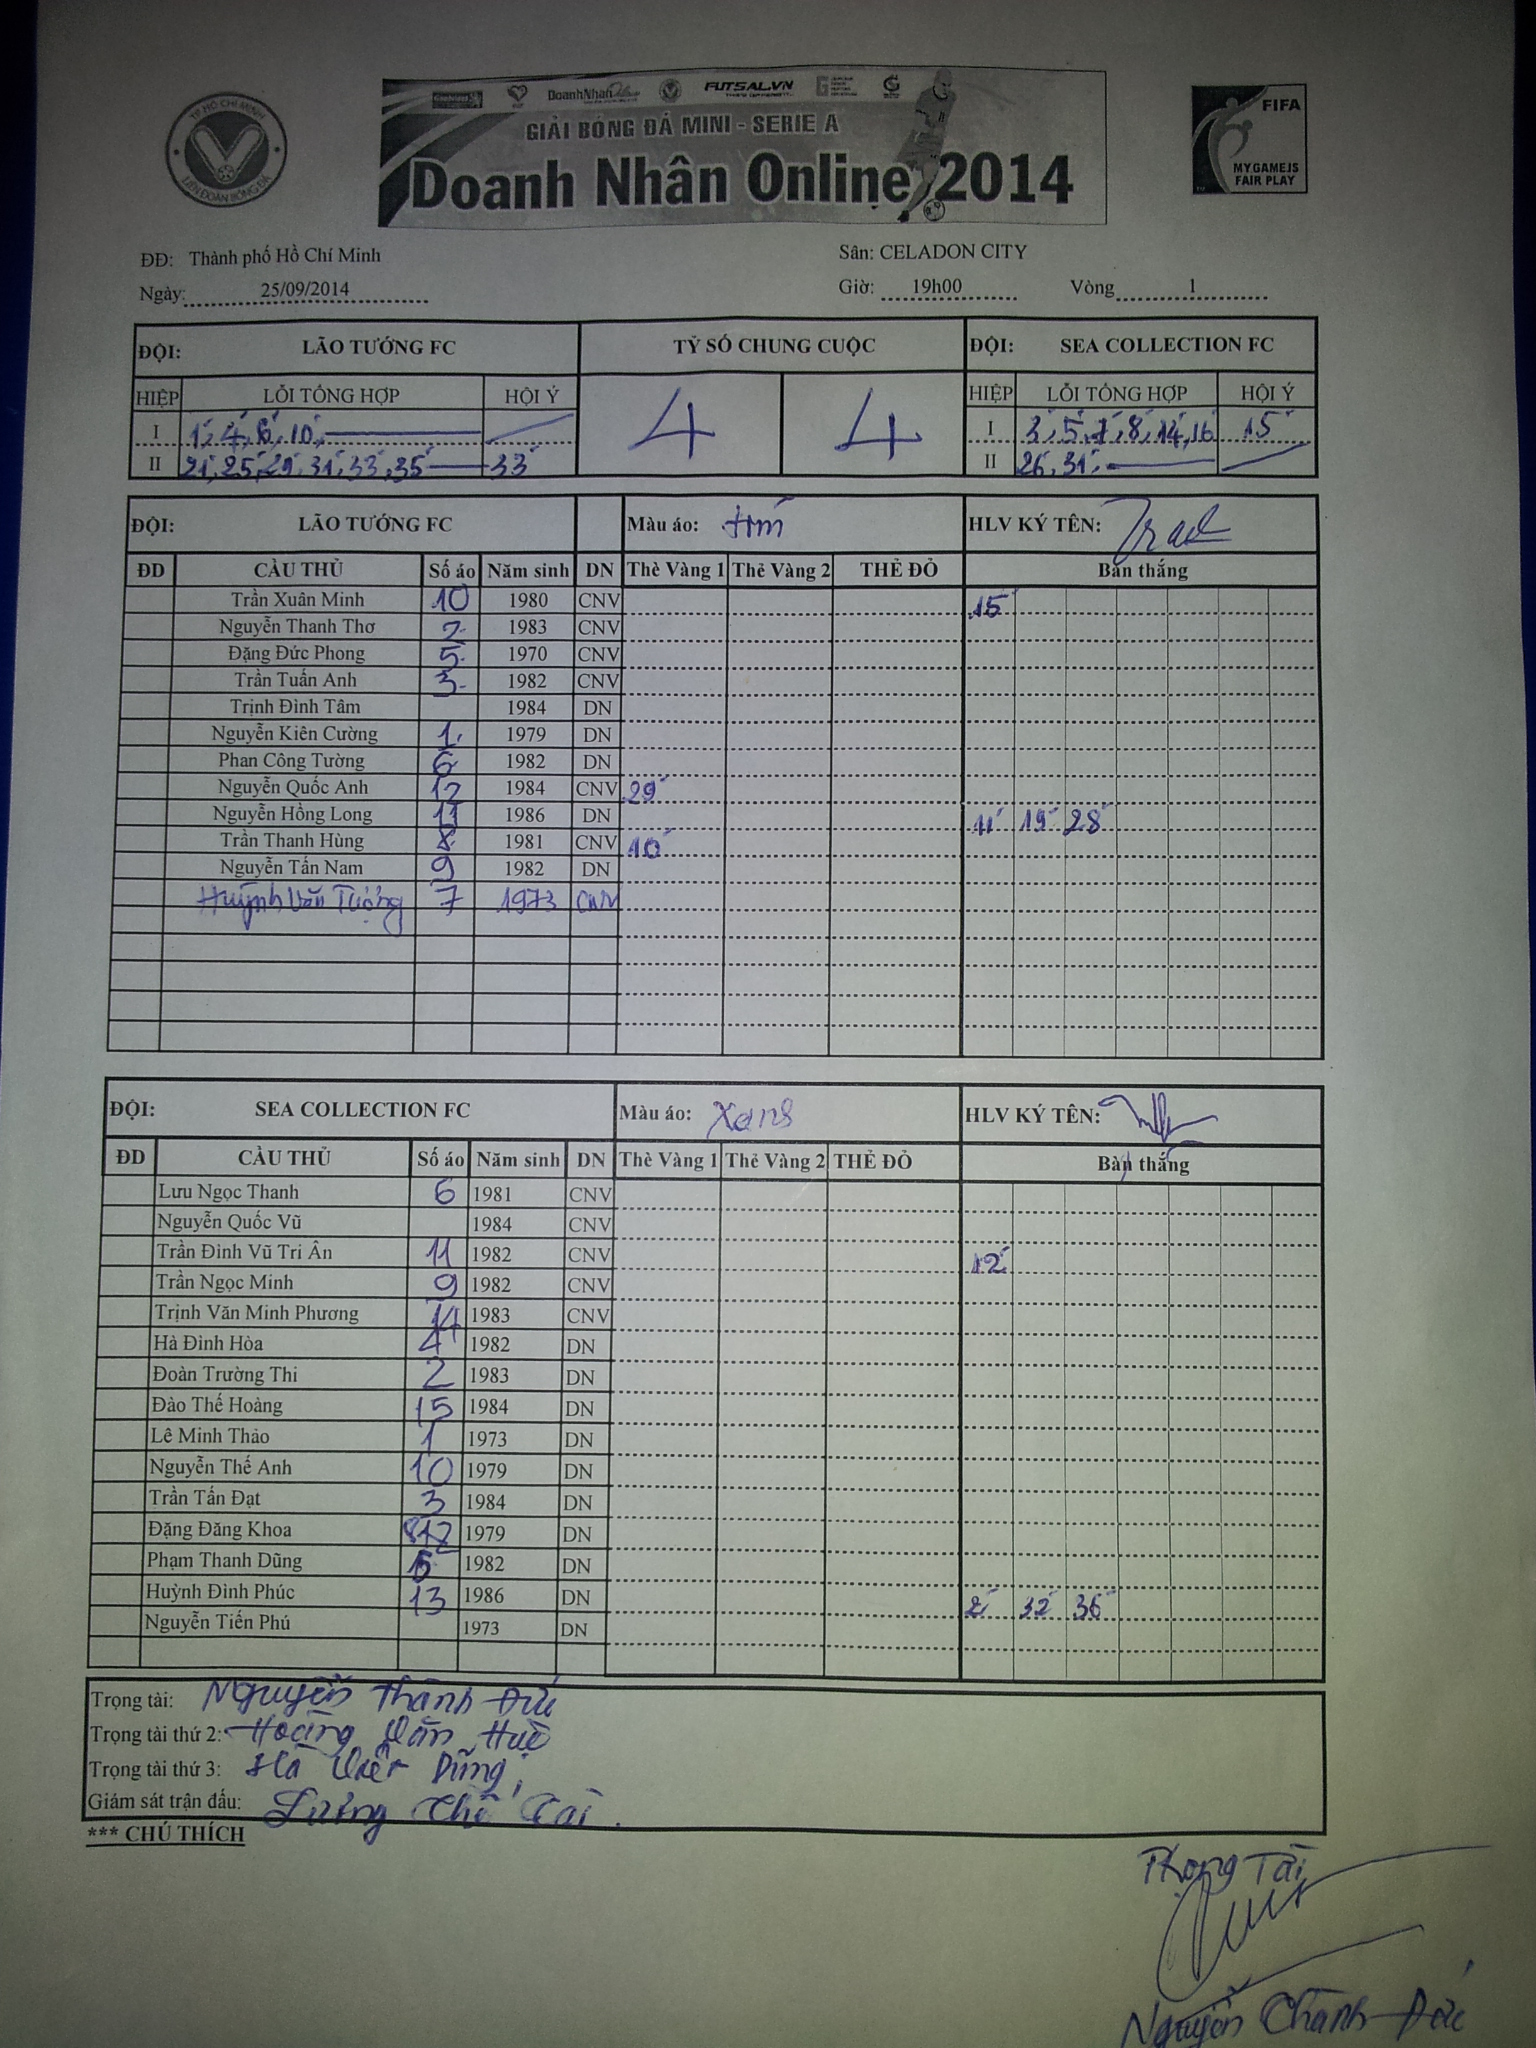 TP HỒ CHÍ MINH
LIÊN ĐOÀN BÓNG ĐÁ
DoanhNhân FUTSAL.VN
GIẢI BÓNG ĐÁ MINI - SERIE A
Doanh Nhân Online 2014
FIFA
MY GAME IS
FAIR PLAY
ĐĐ: Thành phố Hồ Chí Minh Sân: CELADON CITY
Ngày: 25/09/2014 Giờ: 19h00 Vòng 1
ĐỘI: LÃO TƯỚNG FC TỶ SỐ CHUNG CUỘC ĐỘI: SEA COLLECTION FC
HIỆP LỖI TỔNG HỢP HỘI Ý 4 4 HIỆP LỖI TỔNG HỢP HỘI Ý
I 1', 4', 6', 10' I 3', 5', 7', 8', 14', 16' 15'
II 21', 25', 29', 31', 33', 35' 33' II 26', 31'
ĐỘI: LÃO TƯỚNG FC Màu áo: tím HLV KÝ TÊN:
ĐD CẦU THỦ Số áo Năm sinh DN Thẻ Vàng 1 Thẻ Vàng 2 THẺ ĐỎ Bàn thắng
Trần Xuân Minh 10 1980 CNV 15'
Nguyễn Thanh Thơ 2 1983 CNV
Đặng Đức Phong 5 1970 CNV
Trần Tuấn Anh 3 1982 CNV
Trịnh Đình Tâm 1984 DN
Nguyễn Kiên Cường 1 1979 DN
Phan Công Tường 6 1982 DN
Nguyễn Quốc Anh 12 1984 CNV 29'
Nguyễn Hồng Long 11 1986 DN 11' 19' 28'
Trần Thanh Hùng 8 1981 CNV 10'
Nguyễn Tấn Nam 9 1982 DN
Huỳnh Văn Tượng 7 1973 CNV
ĐỘI: SEA COLLECTION FC Màu áo: Xanh HLV KÝ TÊN:
ĐD CẦU THỦ Số áo Năm sinh DN Thẻ Vàng 1 Thẻ Vàng 2 THẺ ĐỎ Bàn thắng
Lưu Ngọc Thanh 6 1981 CNV
Nguyễn Quốc Vũ 1984 CNV
Trần Đình Vũ Tri Ân 11 1982 CNV 12'
Trần Ngọc Minh 9 1982 CNV
Trịnh Văn Minh Phương 14 1983 CNV
Hà Đình Hòa 4 1982 DN
Đoàn Trường Thi 2 1983 DN
Đào Thế Hoàng 15 1984 DN
Lê Minh Thảo 1 1973 DN
Nguyễn Thế Anh 10 1979 DN
Trần Tấn Đạt 3 1984 DN
Đặng Đăng Khoa 1979 DN
Phạm Thanh Dũng 5 1982 DN
Huỳnh Đình Phúc 13 1986 DN 2' 32' 36'
Nguyễn Tiến Phú 1973 DN
Trọng tài: Nguyễn Thành Đức
Trọng tài thứ 2: Hoàng Văn Huệ
Trọng tài thứ 3: Hà Việt Dũng
Giám sát trận đấu: Tài
*** CHÚ THÍCH
Trọng Tài
Nguyễn Thành Đức